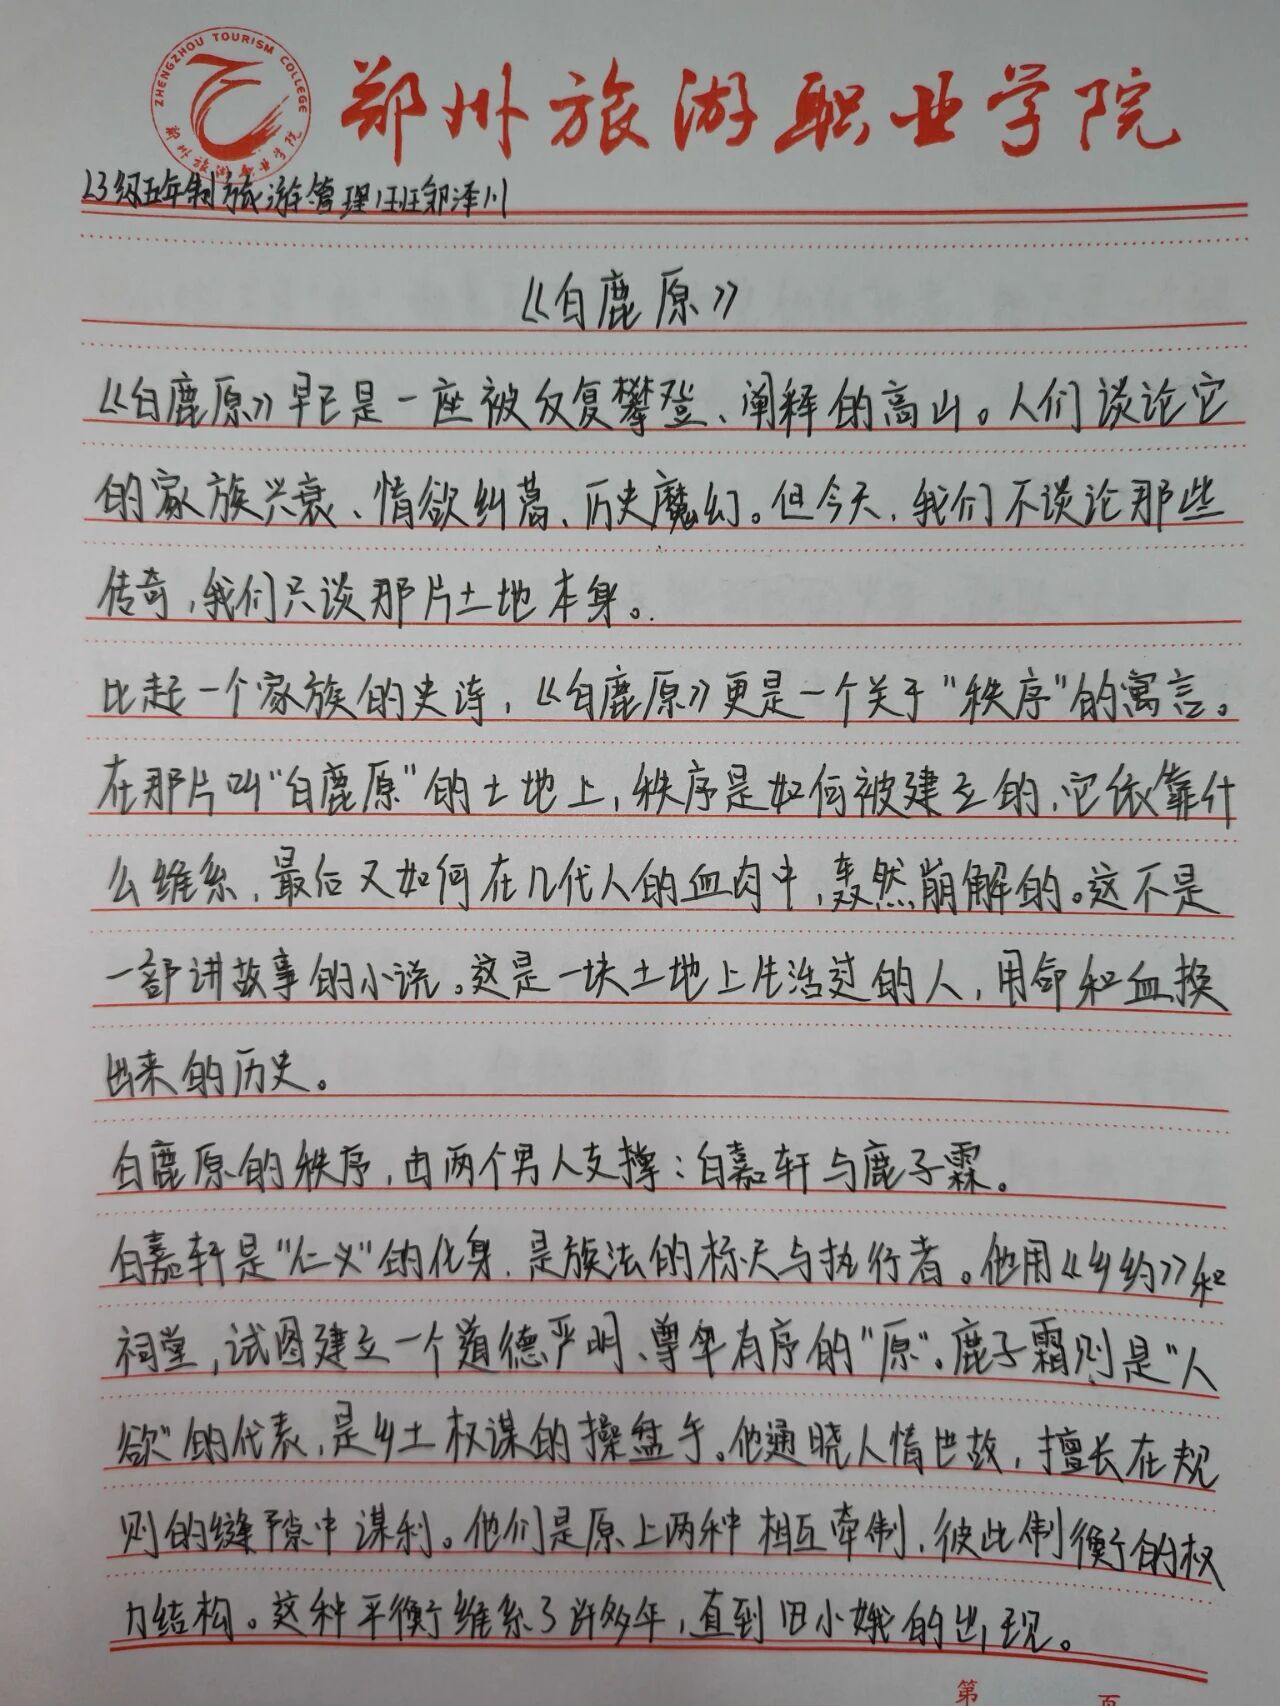 ZHENGZHOU TOURISM COLLEGE
郑州旅游职业学院
郑州旅游职业学院
23级五年制旅游管理1班邹泽川
《白鹿原》
《白鹿原》早已是一座被反复攀登、阐释的高山。人们谈论它
的家族兴衰、情欲纠葛、历史魔幻。但今天，我们不谈论那些
传奇，我们只谈那片土地本身。
比起一个家族的史诗，《白鹿原》更是一个关于"秩序"的寓言。
在那片叫"白鹿原"的土地上，秩序是如何被建立的，它依靠什
么维系，最后又如何在几代人的血肉中，轰然崩解的。这不是
一部讲故事的小说。这是一块土地上生活过的人，用命和血换
出来的历史。
白鹿原的秩序，由两个男人支撑：白嘉轩与鹿子霖。
白嘉轩是"仁义"的化身，是族法的标尺与执行者。他用《乡约》和
祠堂，试图建立一个道德严明、尊卑有序的"原"。鹿子霜则是"人
欲"的代表，是乡土权谋的操盘手。他通晓人情世故，擅长在规
则的缝隙中谋利。他们是原上两种相互牵制，彼此制衡的权
力结构。这种平衡维系了许多年，直到田小娥的出现。
第 页